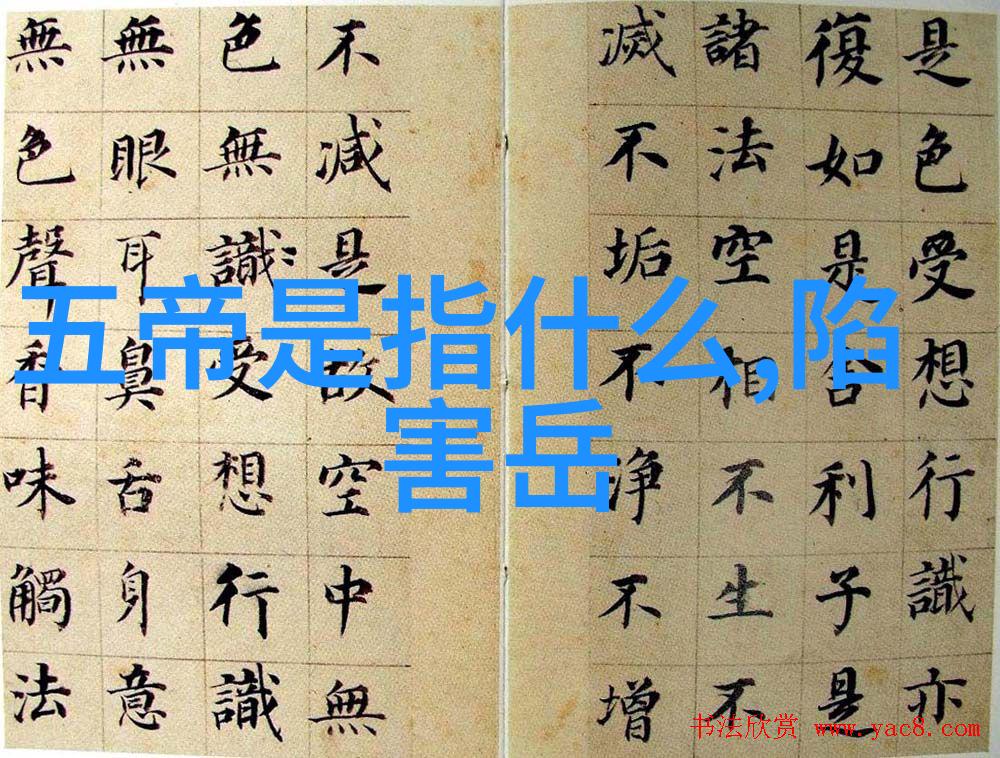 是色受想行識亦
復如是舍利子是
諸法空相不生不
滅不垢不淨不增
不減是故空中無
色無識受想行識
無眼耳鼻舌身意
無色聲香味觸法
五帝是指什么,陷
害岳
书法欣赏 www.yac8.com